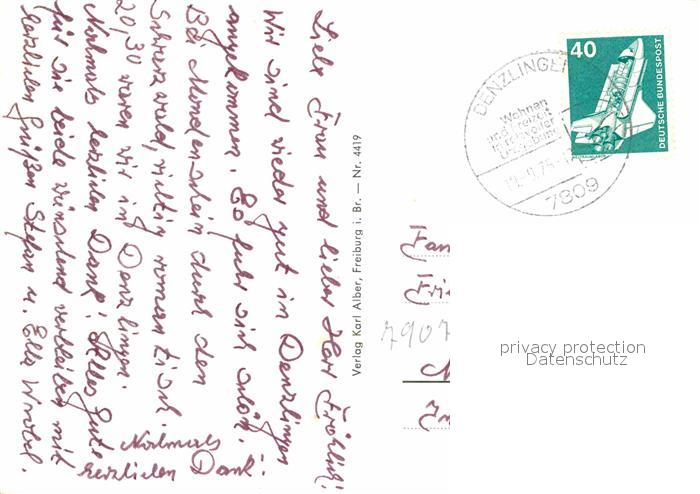 Liebe Frau und lieber Herr Fröhlich!
Wir sind wieder gut in Denzlingen
angekommen. Es fuhr sich schön.
Bei Mondenschein durch den
Schwarzwald, richtig romantisch.
20,30 waren wir in Denzlingen.
Nochmals herzlichen Dank! Alles Gute
für Sie beide wünschend verbleiben mit
herzlichen Grüßen Stefan u. Ella Wrobel.
Nochmals
herzlichen Dank!
Verlag Karl Alber, Freiburg i. Br. — Nr. 4419
DENZLINGEN
Wohnen
und Freizeit
in reizvoller
Umgebung
7809
40
DEUTSCHE BUNDESPOST
Fam
790
privacy protection
Datenschutz